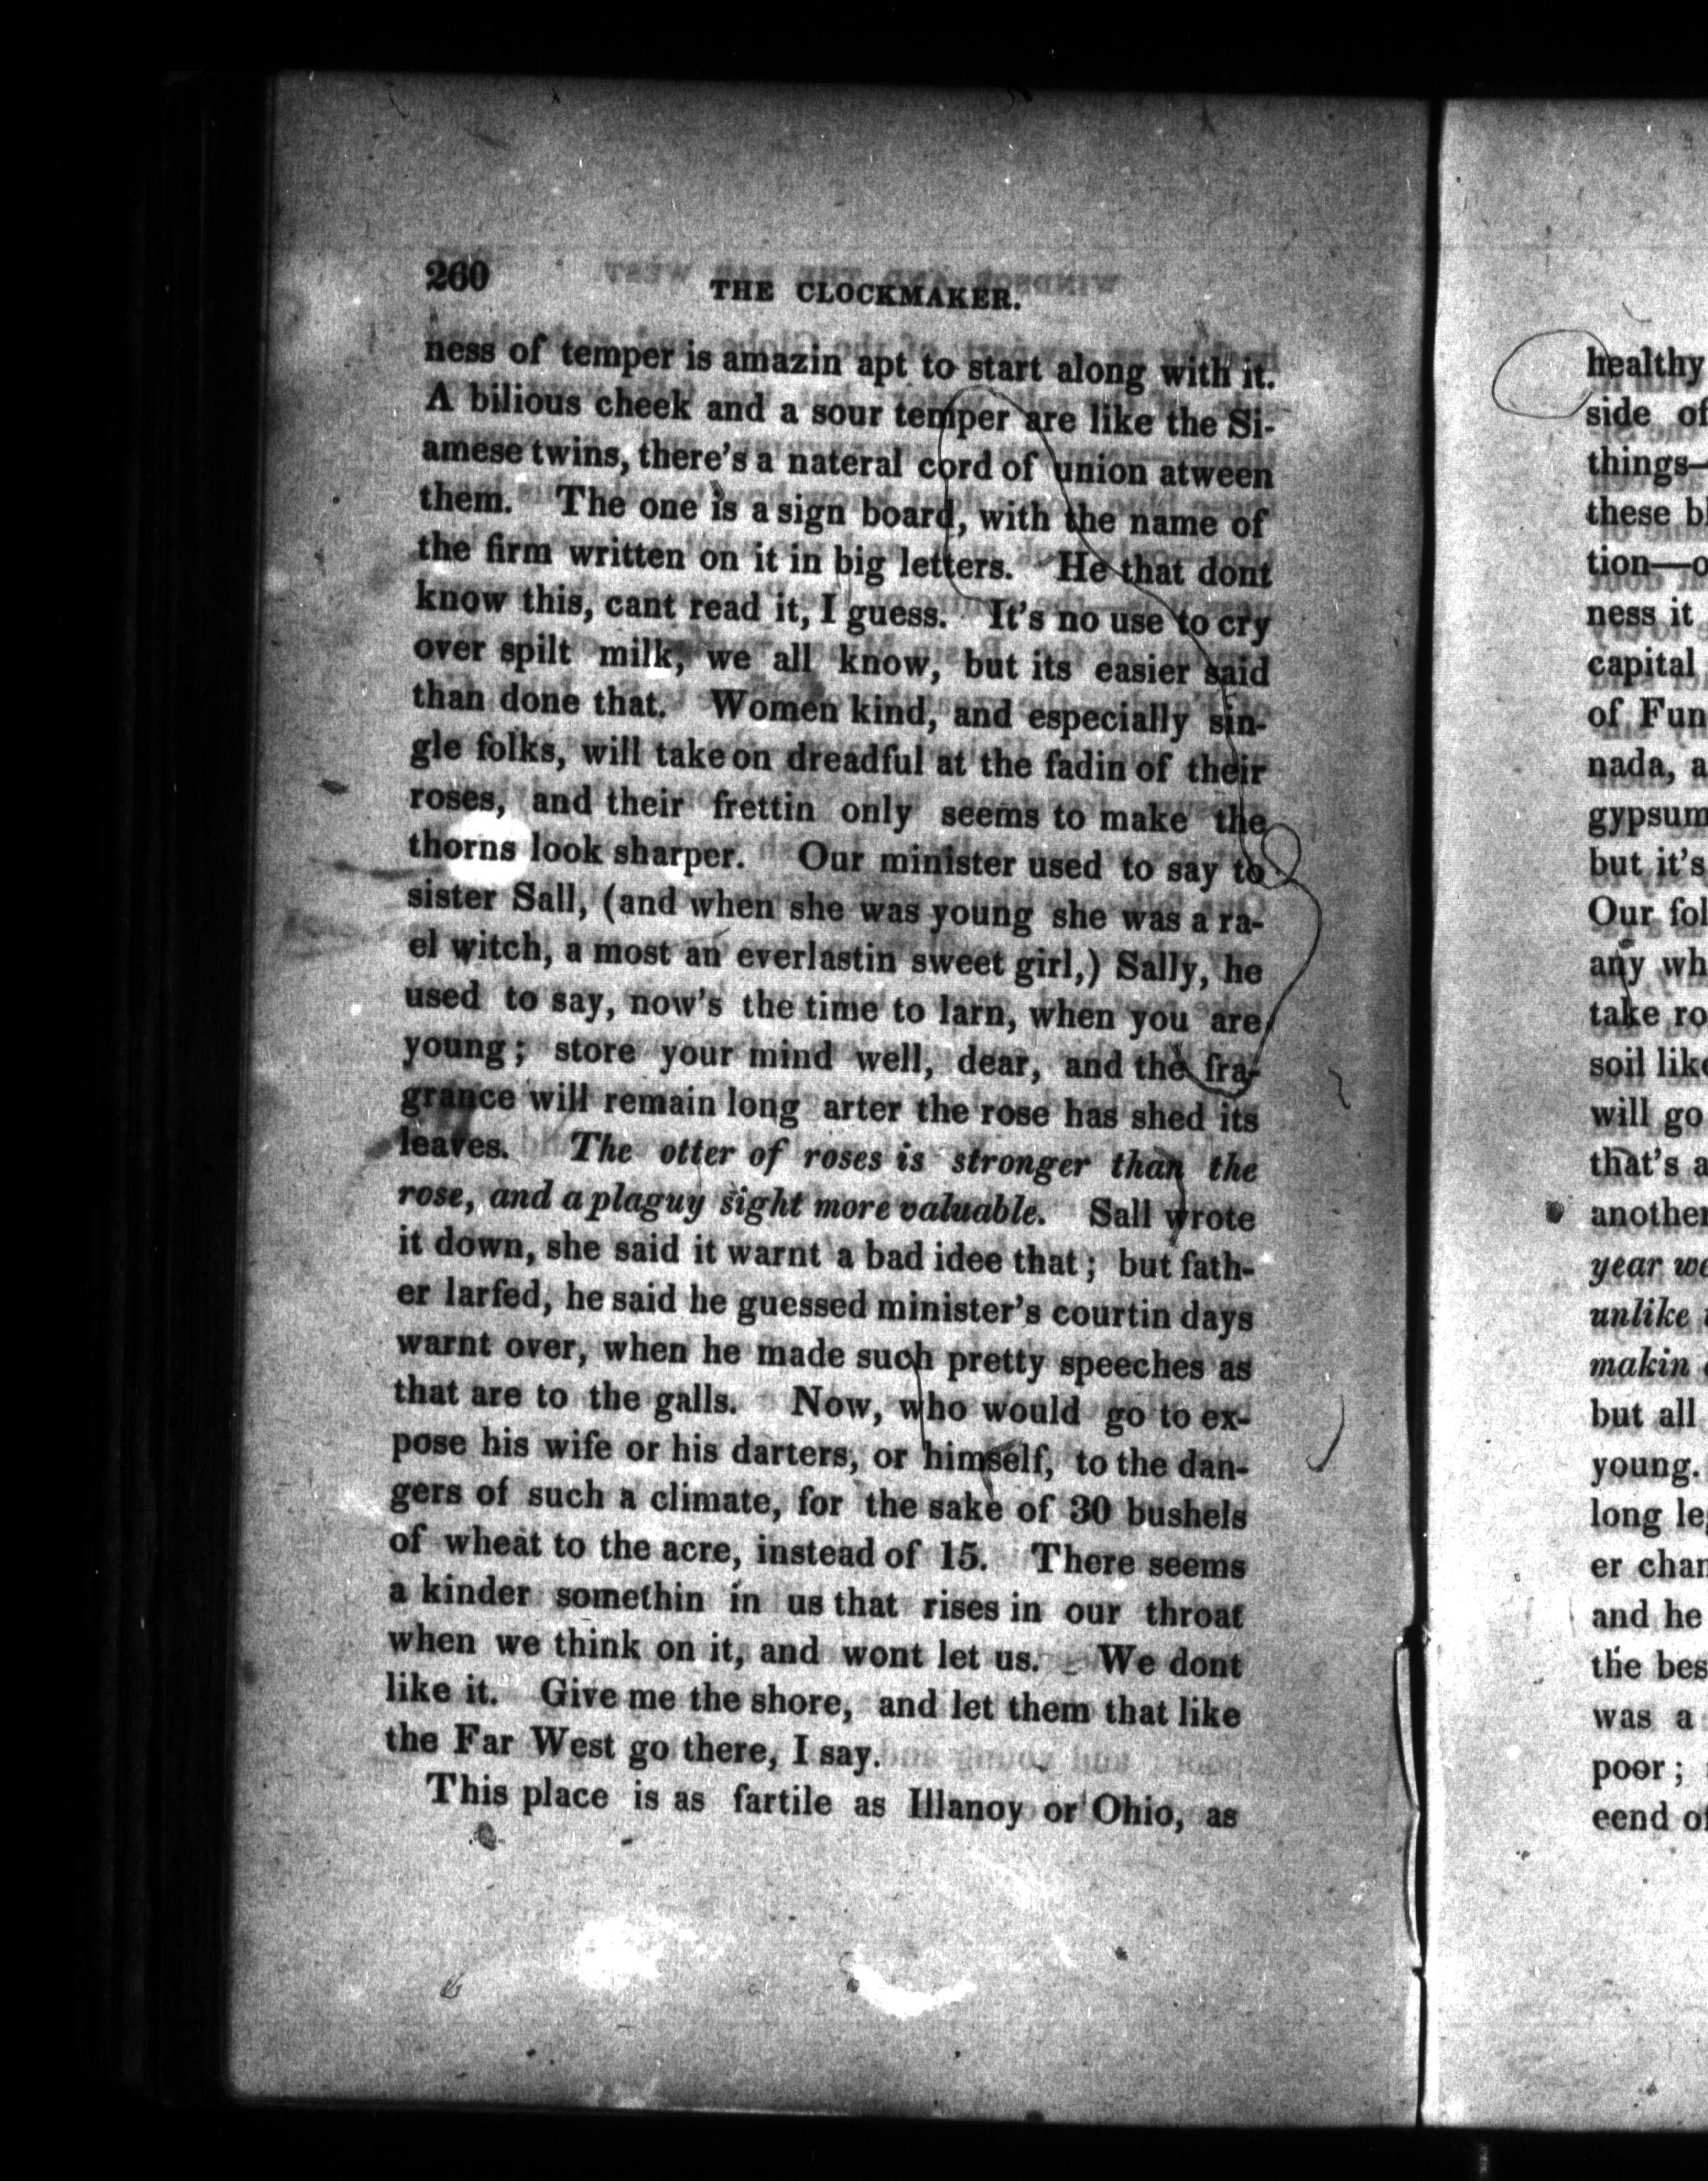 260
THE CLOCKMAKER.
ness of temper is amazin apt to start along with it.
A bilious cheek and a sour temper are like the Si-
amese twins, there's a nateral cord of union atween
them. The one is a sign board, with the name of
the firm written on it in big letters. He that dont
know this, cant read it, I guess. It's no use to cry
over spilt milk, we all know, but its easier said
than done that. Women kind, and especially sin-
gle folks, will take on dreadful at the fadin of their
roses, and their frettin only seems to make the
thorns look sharper. Our minister used to say to
sister Sall, (and when she was young she was a ra-
el witch, a most an everlastin sweet girl,) Sally, he
used to say, now's the time to larn, when you are
young; store your mind well, dear, and the fra-
grance will remain long arter the rose has shed its
leaves. The otter of roses is stronger than the
rose, and a plaguy sight more valuable. Sall wrote
it down, she said it warnt a bad idee that; but fath-
er larfed, he said he guessed minister's courtin days
warnt over, when he made such pretty speeches as
that are to the galls. Now, who would go to ex-
pose his wife or his darters, or himself, to the dan-
gers of such a climate, for the sake of 30 bushels
of wheat to the acre, instead of 15. There seems
a kinder somethin in us that rises in our throat
when we think on it, and wont let us. We dont
like it. Give me the shore, and let them that like
the Far West go there, I say.
This place is as fartile as Illanoy or Ohio, as
healthy
side of
things—
these b
tion—o
ness it
capital
of Fun
nada, a
gypsum
but it's
Our fol
any wh
take ro
soil like
will go
that's a
another
year we
unlike
makin
but all
young.
long le
er chan
and he
the bes
was a
poor;
eend of